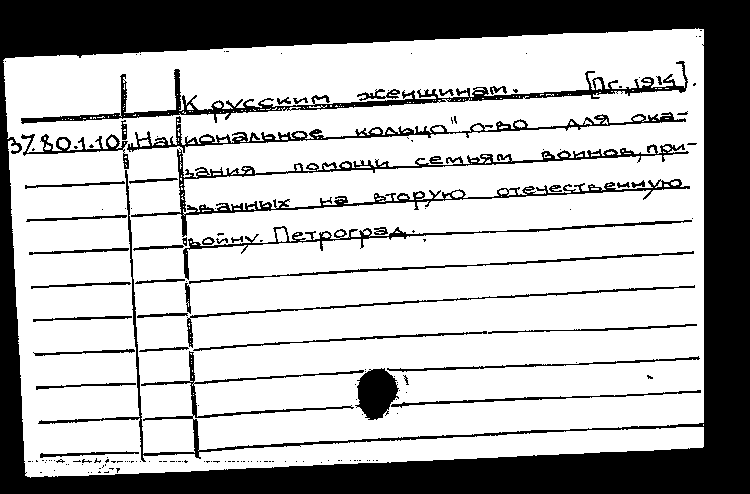 К русским женщинам. [Пг., 1914].
37.80.1.10 „Национальное кольцо", о-во для ока-
зания помощи семьям воинов, при-
званных на вторую отечественную
войну. Петроград.